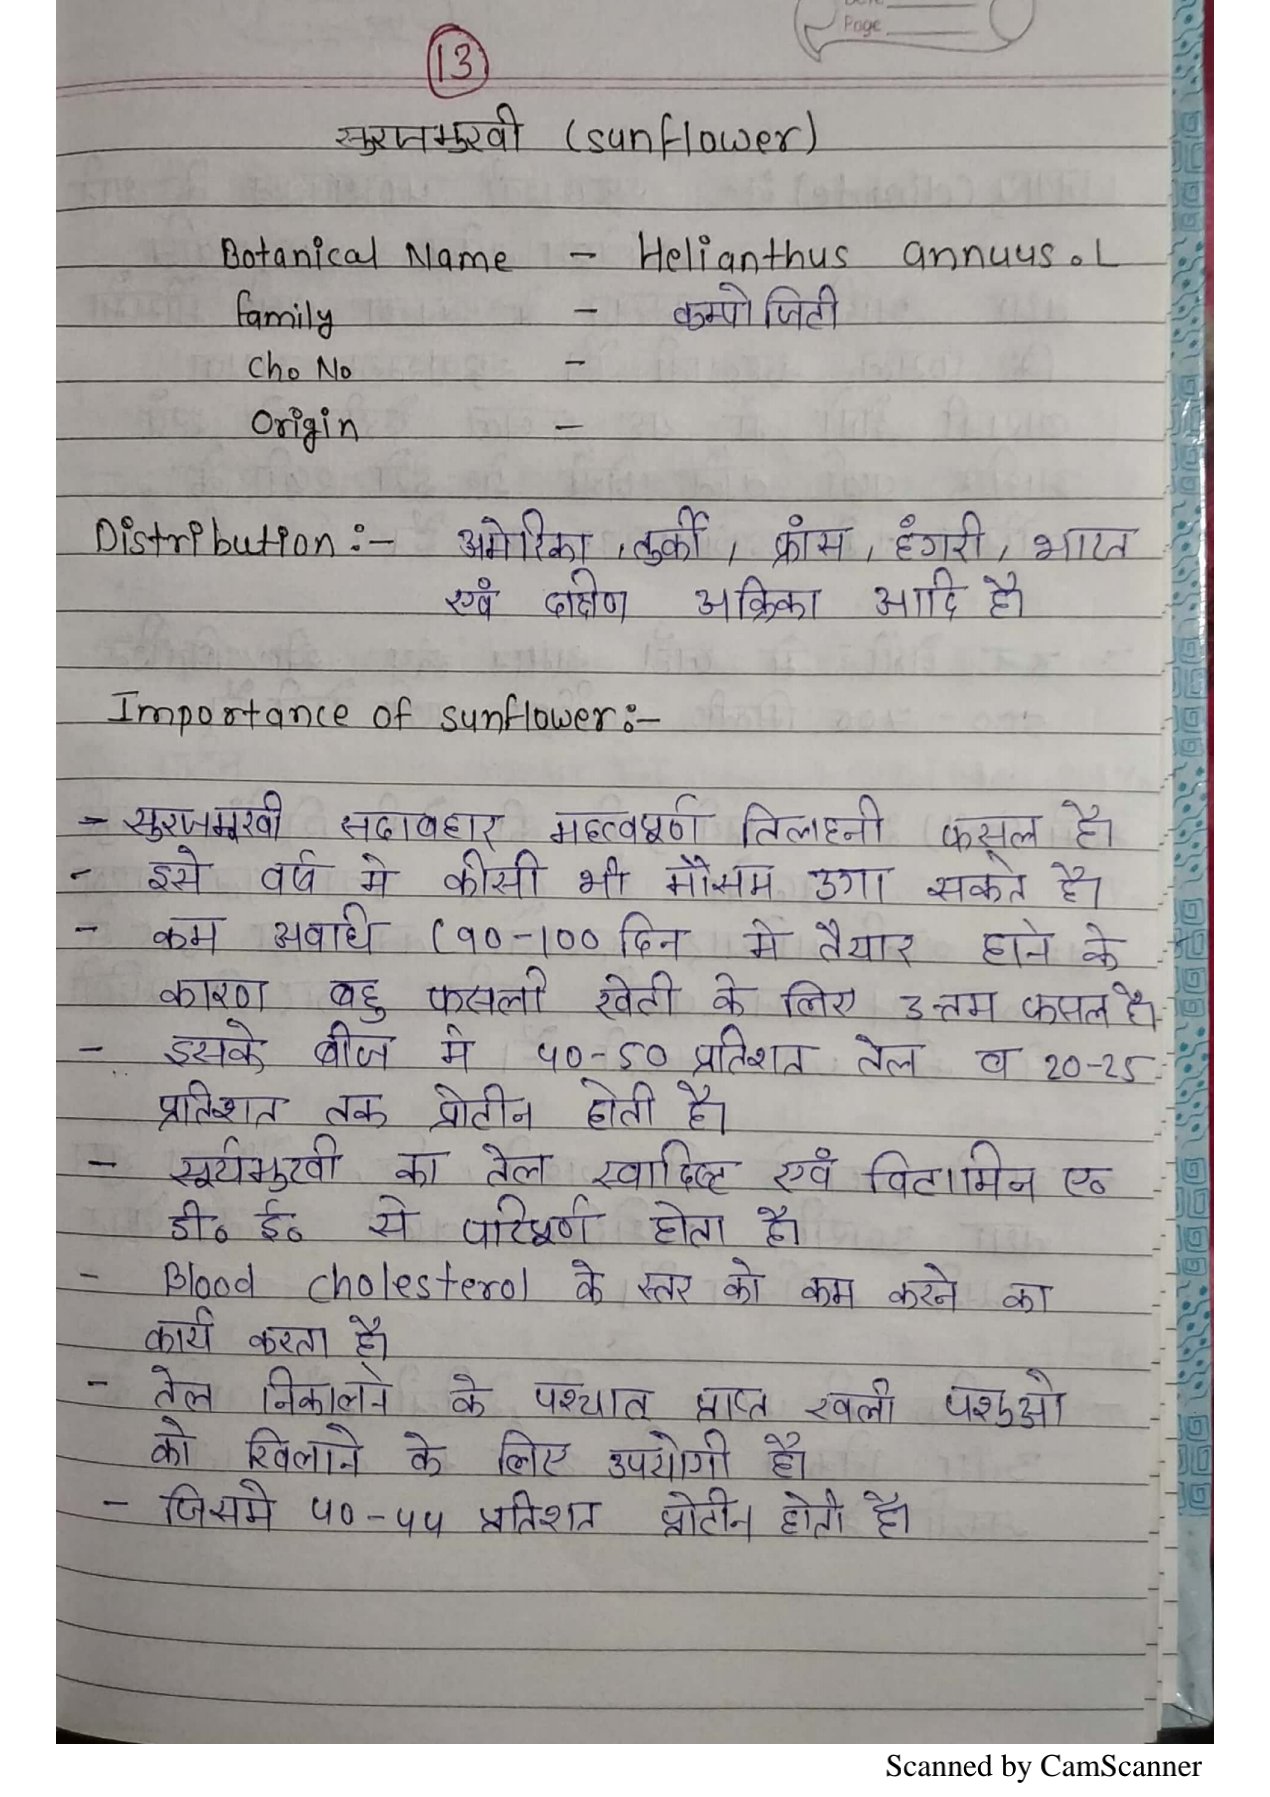 Date
Page
13
सुरजमुखी (sunflower)
Botanical Name - Helianthus annuus. L
family - कम्पोजिटी
Cho No -
Origin -
Distribution :- अमेरिका, तुर्की, फ्रांस, हंगरी, भारत
एवं दक्षिण अफ्रिका आदि है।
Importance of sunflower :-
- सुरजमूखी सदाबहार महत्वपूर्ण तिलहनी फसल है।
- इसे वर्ष मे कीसी भी मौसम उगा सकते है।
- कम अवधि (90-100 दिन मे तैयार होने के
कारण बहु फसली खेती के लिए उत्तम फसल है।
- इसके बीज मे ४०-50 प्रतिशत तेल व 20-25
प्रतिशत तक प्रोटीन होती है।
- सूर्यमुखी का तेल स्वादिष्ट एवं विटामिन ए०
डी० ई० से परिपूर्ण होता है।
- Blood cholesterol के स्तर को कम करने का
कार्य करता है।
- तेल निकालने के पश्चात प्राप्त खली पशुओ
को खिलाने के लिए उपयोगी है।
- जिसमे ४०-४४ प्रतिशत प्रोटीन होती है।
Scanned by CamScanner